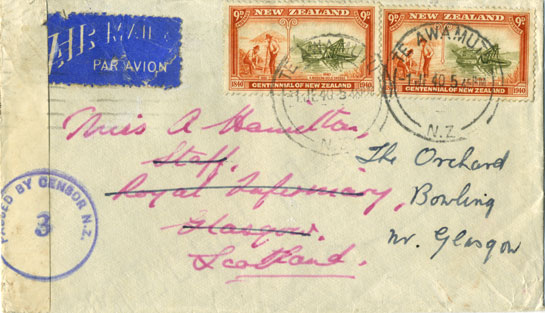 AIR MAIL
PAR AVION
9D NEW ZEALAND 9D
1840 CENTENNIAL OF NEW ZEALAND 1940
9D NEW ZEALAND 9D
CENTENNIAL OF NEW ZEALAND 1940
TE AWAMUT
N.Z
PASSED BY CENSOR N.Z.
3
Miss A Hamilton,
Staff,
Royal Infirmary,
Glasgow.
Scotland.
The Orchard
Bowling
nr. Glasgow